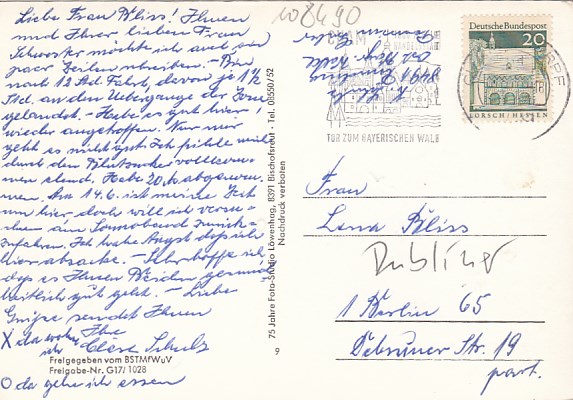 Liebe Frau Bliss! Ihnen
und Ihrer lieben Frau
Schwester möchte ich auch ein
paar Zeilen schreiben. – Bin
nach 12 Std. Fahrt, davon je 1½
Std. an den Uebergängen der Zone
gelandet. – Habe es gut hier
wieder angetroffen. Nur mir
geht es nicht gut. Ich fühle mich
durch den
elend. Habe 20
men. Am 14.6. ist meine Zeit
um hier doch will ich versu-
chen am Sonnabend zurück-
zufahren. Ich habe Angst daß ich
hier absacke. – Sehr hoffe ich,
daß es Ihnen Beiden gesund-
heitlich gut geht. – Liebe
Grüße sendet Ihnen
Ihre
X da wohne ich
Schulz
Freigegeben vom BSTMfWuV
Freigabe-Nr. G17/ 1028
O da gehe ich essen
75 Jahre Foto-Studio Löwenhag, 8391 Bischofsreut · Tel. 08550/52
Nachdruck verboten
9
108490
CHAM
TOR ZUM BAYERISCHEN WALD
Deutsche Bundespost
20
LORSCH/HESSEN
8491
Frau
Lena Bliss
Dubliner
1 Berlin 65
Str. 19
part.